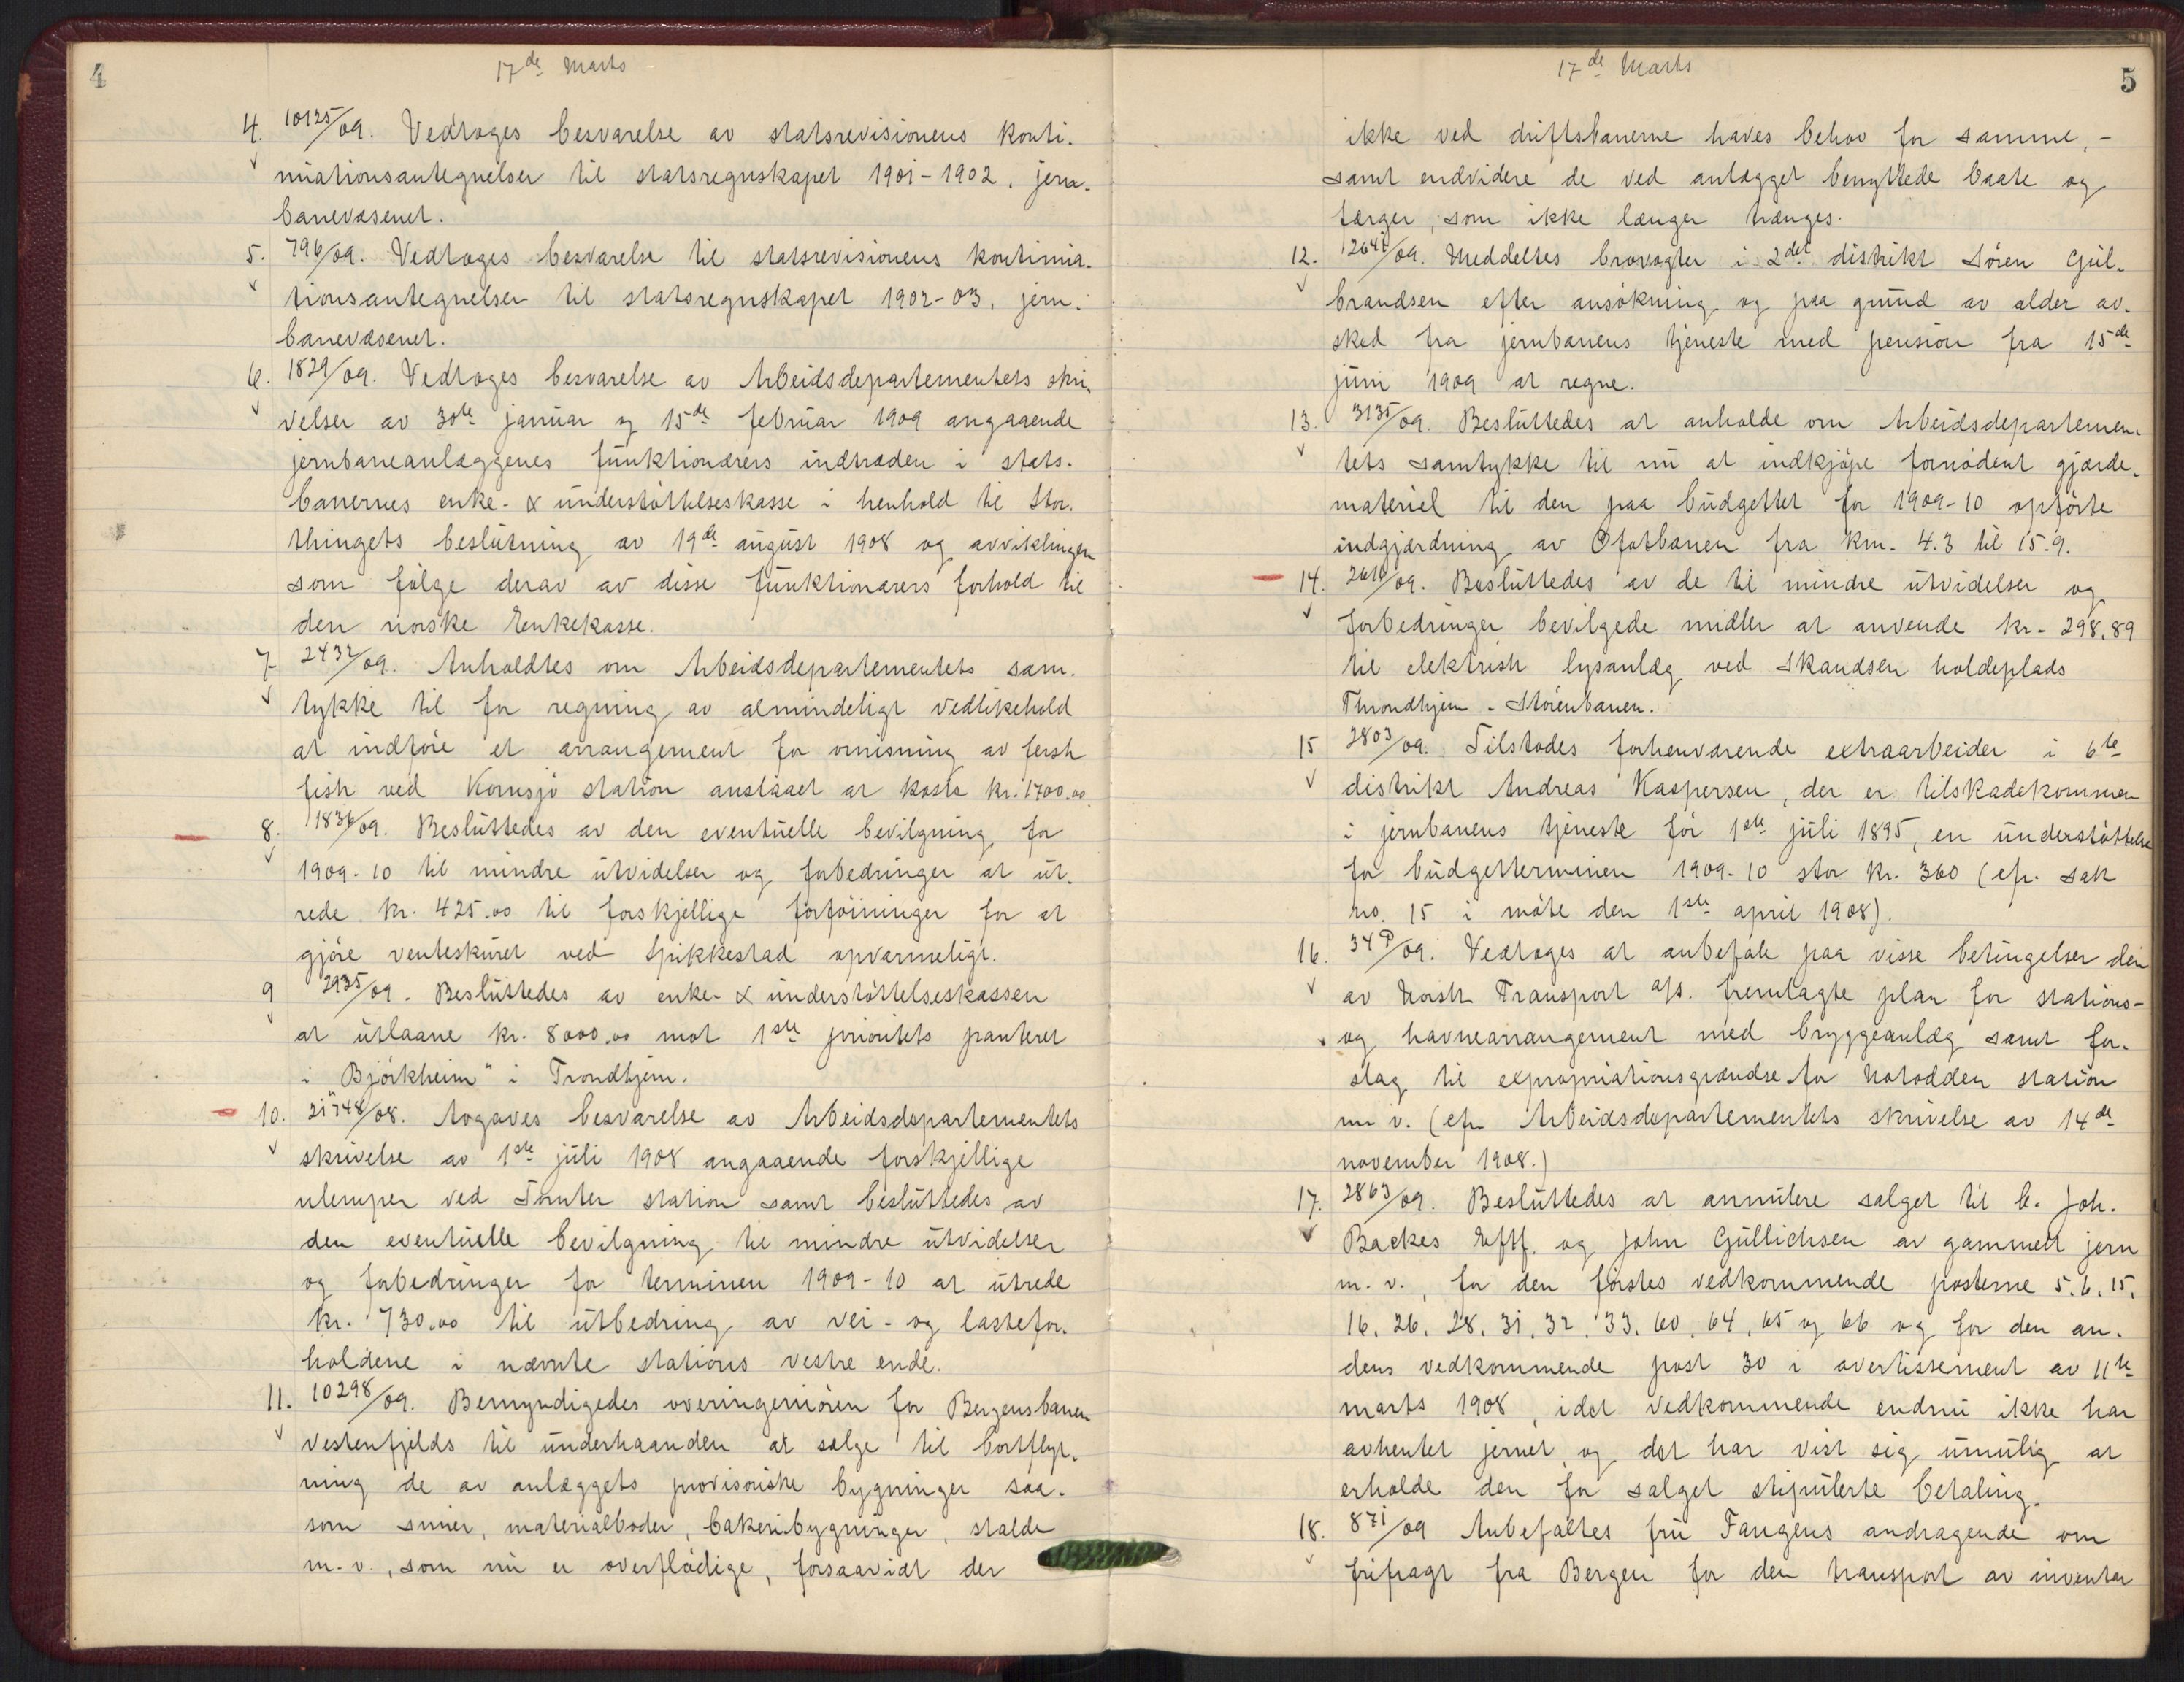 4
17de Marts
4. 10125/09. Vedtoges besvarelse av statsrevisionens konti-
nuationsantegnelser til statsregnskapet 1901-1902, jern-
banevæsenet.
5. 796/09. Vedtoges besvarelse til statsrevisionens kontinua-
tionsantegnelser til statsregnskapet 1902-03, jern-
banevæsenet.
6. 1829/09. Vedtoges besvarelse av Arbeidsdepartementets skri-
velser av 30te januar og 15de februar 1909 angaaende
jernbaneanlæggenes funktionærers indtræden i stats-
banernes enke- & understøttelseskasse i henhold til Stor-
thingets beslutning av 19de august 1908 og avviklingen
som følge derav av disse funktionærers forhold til
den norske Enkekasse.
7. 2432/09. Anholdtes om Arbeidsdepartementets sam-
tykke til for regning av almindeligt vedlikehold
at indføre et arrangement for omisning av fersk
fisk ved Kornsjø station anslaaet at koste kr. 1700.00
8. 1836/09. Besluttedes av den eventuelle bevilgning for
1909-10 til mindre utvidelser og forbedringer at ut-
rede kr. 425.00 til forskjellige forføininger for at
gjøre venteskuret ved Spikkestad opvarmeligt.
9 2935/09. Besluttedes av enke- & understøttelseskassen
at utlaane kr. 8000.00 mot 1ste prioritets panteret
i "Bjørkheim" i Trondhjem.
10. 21748/08. Avgaves besvarelse av Arbeidsdepartementets
skrivelse av 1ste juli 1908 angaaende forskjellige
ulemper ved Tomter station samt besluttedes av
den eventuelle bevilgning til mindre utvidelser
og forbedringer for terminen 1909-10 at utrede
kr. 730.00 til utbedring av vei- og lastefor-
holdene i nævnte stations vestre ende.
11. 10298/09. Bemyndigedes overingeniøren for Bergensbanen
vestenfjelds til underhaanden at sælge til bortflyt-
ning de av anlæggets provisoriske bygninger saa-
som smier, materialboder, bakeribygninger, stalde
m.v., som nu er overflødige, forsaavidt der
5
17de Marts
ikke ved driftsbanerne haves behov for samme, -
samt endvidere de ved anlægget benyttede baate og
færger, som ikke længer trænges.
12. 2641/09. Meddeltes brovogter i 2det distrikt Søren Gul-
brandsen efter ansøkning og paa grund av alder av-
sked fra jernbanens tjeneste med pension fra 15de
juni 1909 at regne.
13. 3135/09. Besluttedes at anholde om Arbeidsdepartemen-
tets samtykke til nu at indkjøpe fornødent gjærde-
materiel til den paa budgettet for 1909-10 opførte
indgjærdning av Ofotbanen fra km. 4.3 til 15.9.
14. 2610/09. Besluttedes av de til mindre utvidelser og
forbedringer bevilgede midler at anvende kr. 298,89
til elektrisk lysanlæg ved Skandsen holdeplads
Throndhjem - Størenbanen.
15 2803/09. Tilstodes forhenværende extraarbeider i 6te
distrikt Andreas Kaspersen, der er tilskadekommen
i jernbanens tjeneste før 1ste juli 1895, en understøttelse
for budgetterminen 1909-10 stor kr. 360 (cfr. sak
no. 15 i møte den 1ste april 1908).
16. 34 P/09. Vedtoges at anbefale paa visse betingelser den
av Norsk Transport a/s. fremlagte plan for stations-
og havnearrangement med bryggeanlæg samt for-
slag til expropriationsgrændse for Notodden station
m v. (cfr. Arbeidsdepartementets skrivelse av 14de
november 1908.)
17. 2863/09. Besluttedes at annulere salget til C. Joh.
Backes Eftf. og John Gullichsen av gammelt jern
m. v., for den førstes vedkommende posterne 5. 6. 15.
16. 26. 28. 31. 32. 33. 60. 64. 65 og 66 og for den an-
dens vedkommende post 30 i avertissement av 11te
marts 1908, idet vedkommende endnu ikke har
avhentet jernet, og det har vist sig umulig at
erholde den for salget stipulerte betaling.
18. 871/09 Anbefaltes fru Fangens andragende om
frifragt fra Bergen for den transport av inventar